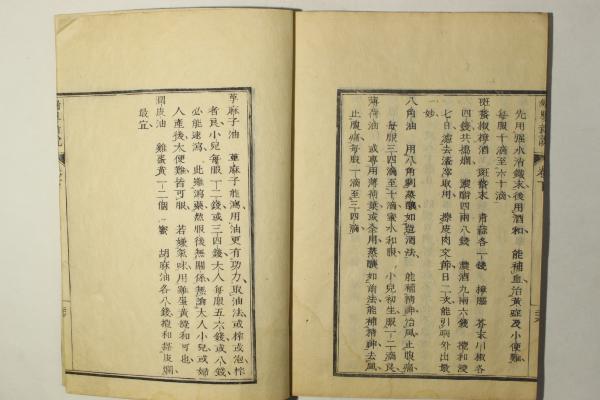 先用强水消鐵末後用酒和 能補血治黃症及小便難
每服十滴至六十滴
斑蝥椒樟酒 斑蝥末 青蒜各一錢 樟腦 芥末 川椒各
四錢 共搗爛 濃醋四兩八錢 濃酒九兩六錢 攪和浸
七日 濾去渣滓取用 搽皮肉交節 日二次 能引病外出最
妙
八角油 用八角剁蒸釀如造酒法 能補精神治風止腹痛
每服三四滴至十滴 蜜水和服 小兒初生服一二滴良
薄荷油 或專用薄荷葉或全用蒸釀如前法 能補精神去風
止腹痛 每服一滴至三四滴
萆麻子油 萆麻子能瀉 用油更有功力 取油法或榨或泡 榨
者良 小兒每服一二錢或三四錢 大人每服五六錢或八錢
必能速瀉 此雖瀉藥 然服後無關係 無論大人小兒或婦
人產後大便難皆可服 若嫌氣味 用雞蛋黃攪和可也
爛皮油 雞蛋黃一二個 蜜 胡麻油各八錢 攪和搽皮爛
最宜